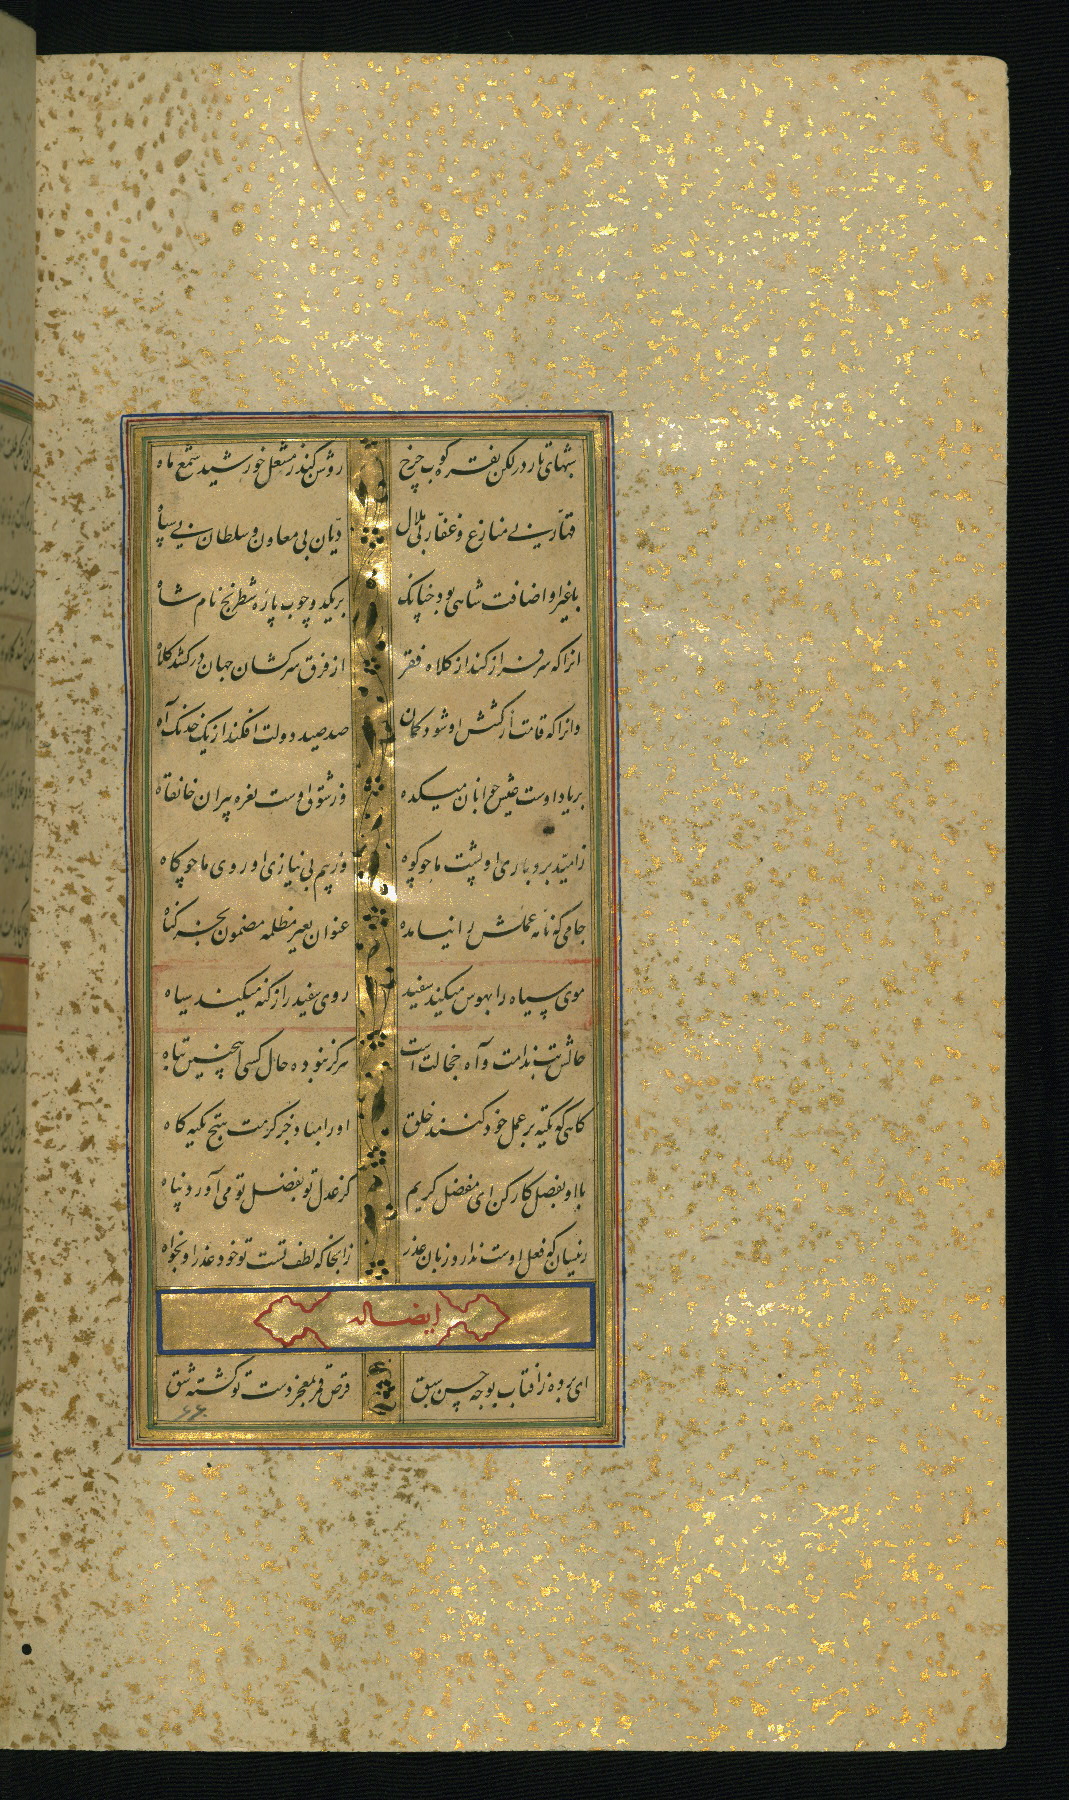 شبهای تار در لکن نقره کوب چرخ روشن کند ز مشعل خورشید شمع ماه
قهار بی منازع و غفار بی ملال دیان بی معاون و سلطان بی سپاه
با غیر او اضافت شاهی بود چنانک بر یکدو چوب پاره شطرنج نام شاه
انرا که سرفراز کند از کلاه فقر از فرق سرکشان جهان در کشد کلاه
وانرا که قامت از کشش او شود کمان صد صید دولت افکند از یک خدنک آه
بر یاد اوست عیش جوانان میکده وز شوق اوست نعره پیران خانقاه
ز امید بردباری او پشت ما چو کوه وز بیم بی نیازی او روی ما چو کاه
جامی که نامه عملش را نیامده عنوان بغیر مظلمه مضمون بجز کناه
موی سیاه را بهوس میکند سفید روی سفید را ز کنه میکند سیاه
حالش ندامت و آه خجالت است هرکز نبوده حال کسی اینچنین تباه
کاهی که تکیه بر عمل خود کنند خلق او را مباد جز کرمت هیچ تکیه کاه
با او بفضل کار کن ای مفضل کریم کز عدل تو بفضل تو می آورد پناه
زنیسان که فعل اوست ندارد زبان عذر زانجا که لطف تست تو خود عذر او بخواه
ایضا له
ای برده ز افتاب بوجه حسن سبق قرص قمر بمعجز دست تو کشته شق
۶۶